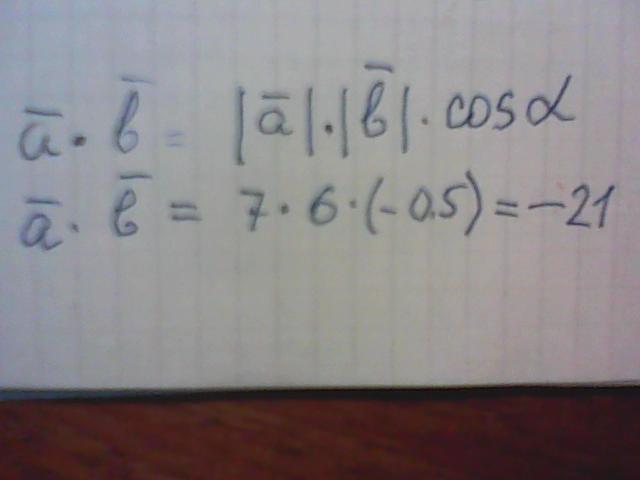 a̅ · b̅ = |a̅| · |b̅| · cos α
a̅ · b̅ = 7 · 6 · (-0.5) = -21